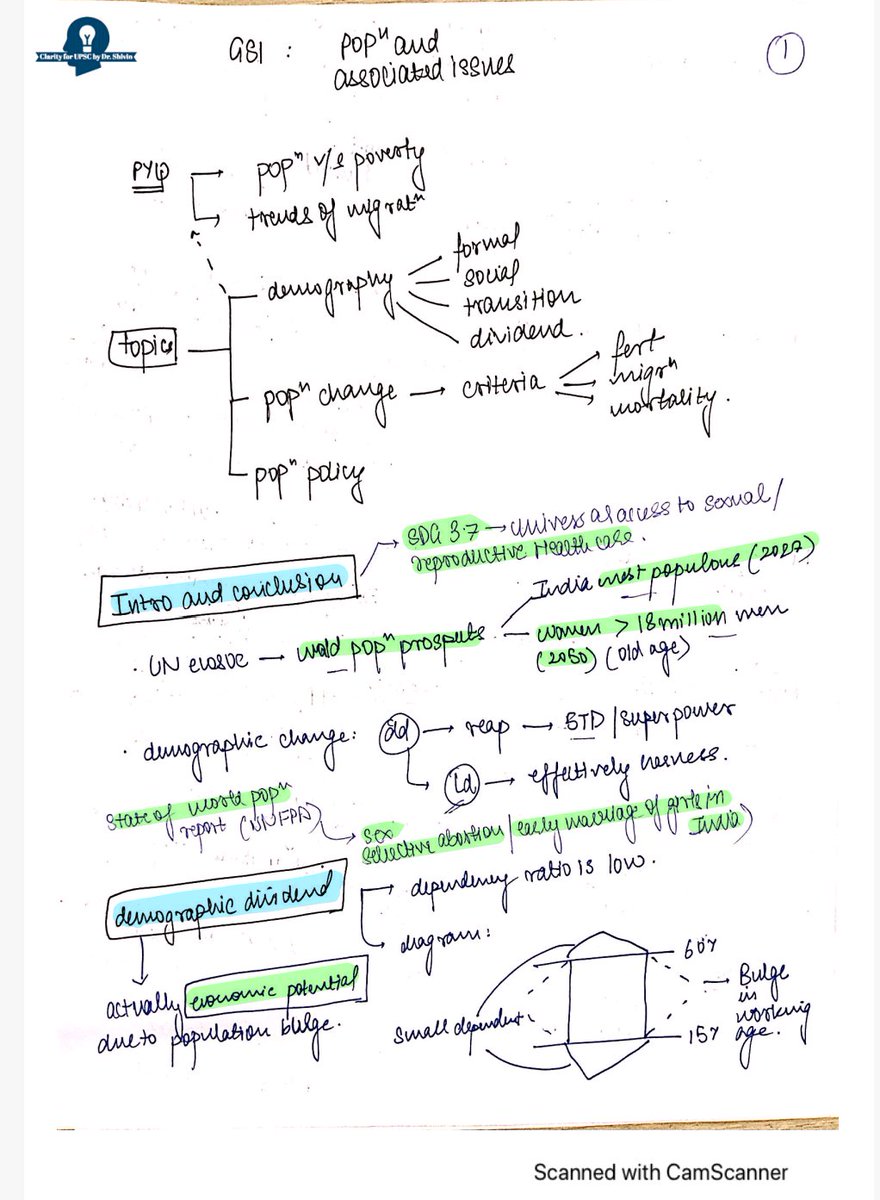 Clarity for UPSC by Dr. Shivin
GS1 : popⁿ and
associated issues
1
PYQ
popⁿ v/s poverty
trends of migratⁿ
topics
demography
formal
social
transition
dividend.
popⁿ change → criteria
fert
migrⁿ
mortality.
popⁿ policy
SDG 3.7 → universal access to sexual/
reproductive Health care.
Intro and conclusion
• UN → world popⁿ prospects
India most populous (2027)
women > 18 million men
(2050) (old age)
• demographic change: dd → reap → 5TD / superpower
Ld → effectively harness.
State of world popⁿ
report (UNFPA)
sex
selective abortion / early marriage of girls in
India)
demographic dividend
dependency ratio is low.
diagram:
actually economic potential
due to population bulge.
small dependent
60y
15y
Bulge
in
working
age.
Scanned with CamScanner